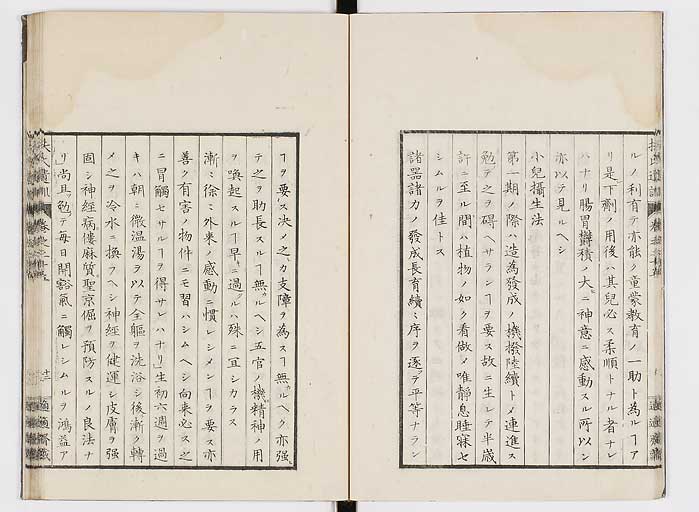 ルノ利育テ亦能ク童蒙教育ノ一助ト為ルヿア
リ是下劑ノ用後ハ其兒必ス柔順トナル者ナレ
ハナリ腸胃鬱積ノ大ニ神意ニ感動スル所以ン
亦以テ見ルヘシ
小兒攝生法
第一期ノ際ハ造為發成ノ機撥陸續トメ連進ス
勉テ之ヲ碍ヘサランヿヲ要ス故ニ生レテ半歳
許ニ至ル間ハ植物ノ如ク看做メ唯靜息睡寐セ
シムルヲ佳トス
諸器諸力ノ發成長育續々序ヲ逐テ平等ナラン
ヿヲ要ス决ノ之カ支障ヲ為スヿ無ルヘク亦強
テ之ヲ助長スルヿ無ルヘシ五官ノ機精神ノ用
ヲ喚起スルヿ早ニ過ルハ殊ニ宜シカラス
漸ニ徐ミ外來ノ感動ニ慣レシメンヿヲ要ス亦
善ク有害ノ物件ニモ習ハシムヘシ向来必ス之
ニ冒觸セサルヿヲ得サレハナリ生初六週ヲ過
キハ朝ニ微温湯ヲ以テ全軀ヲ洗浴シ後漸ク轉
メ之ヲ冷水ニ換フヘシ神経ヲ健運シ皮膚ヲ強
固シ神経病僂麻質聖京倔ヲ預防スルノ良法ナ
リ尚且勉テ毎日開豁氣ニ觸レシムルヲ鴻益ア